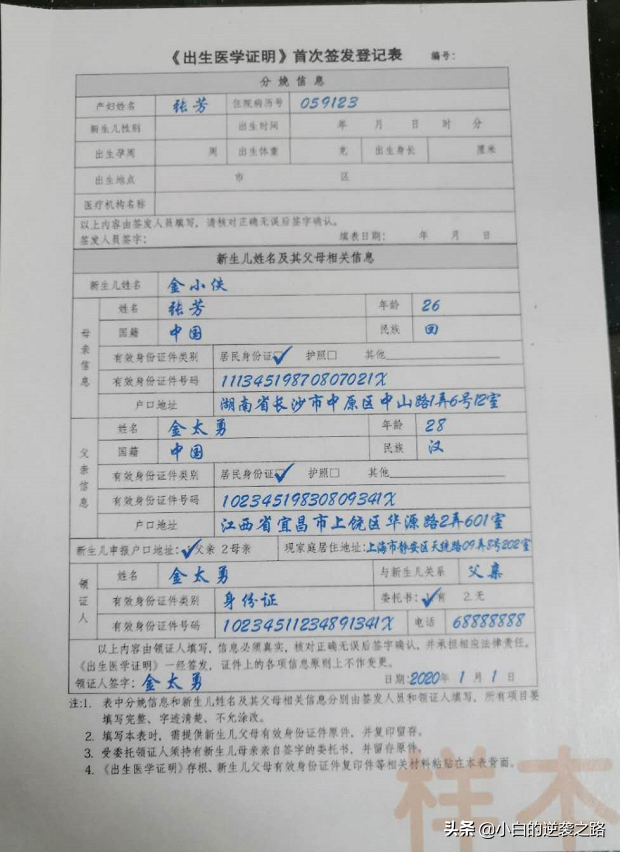 《出生医学证明》首次签发登记表 编号:
分娩信息
产妇姓名 张芳 住院病历号 059123
新生儿性别 出生时间 年 月 日 时 分
出生孕周 周 出生体重 克 出生身长 厘米
出生地点 市 区
医疗机构名称
以上内容由签发人员填写,请核对正确无误后签字确认。
签发人员签字: 填表日期: 年 月 日
新生儿姓名及其父母相关信息
新生儿姓名 金小侠
母亲信息
姓名 张芳 年龄 26
国籍 中国 民族 回
有效身份证件类别 居民身份证☑ 护照□ 其他
有效身份证件号码 11134519870807021X
户口地址 湖南省长沙市中原区中山路1弄6号12室
父亲信息
姓名 金太勇 年龄 28
国籍 中国 民族 汉
有效身份证件类别 居民身份证☑ 护照□ 其他
有效身份证件号码 10234519830809341X
户口地址 江西省宜昌市上饶区华源路2弄601室
新生儿申报户口地址: ✓父亲 2母亲 现家庭居住地址:上海市静安区天统路09弄8号202室
领证人
姓名 金太勇 与新生儿关系 父亲
有效身份证件类别 身份证 委托书: ✓有 2.无
有效身份证件号码 10234511234891341X 电话 68888888
以上内容由领证人填写,信息必须真实,核对正确无误后签字确认,并承担相应法律责任。
《出生医学证明》一经签发,证件上的各项信息原则上不作变更。
领证人签字: 金太勇 日期:2020年 1月 1日
注:1. 表中分娩信息和新生儿姓名及其父母相关信息分别由签发人员和领证人填写,所有项目要
填写完整、字迹清楚、不允涂改。
2. 填写本表时,需提供新生儿父母有效身份证件原件,并复印留存。
3. 受委托领证人须持有新生儿母亲亲自签字的委托书,并留存原件。
4. 《出生医学证明》存根、新生儿父母有效身份证件复印件等相关材料粘贴在本表背面。
样本
头条 @小白的逆袭之路